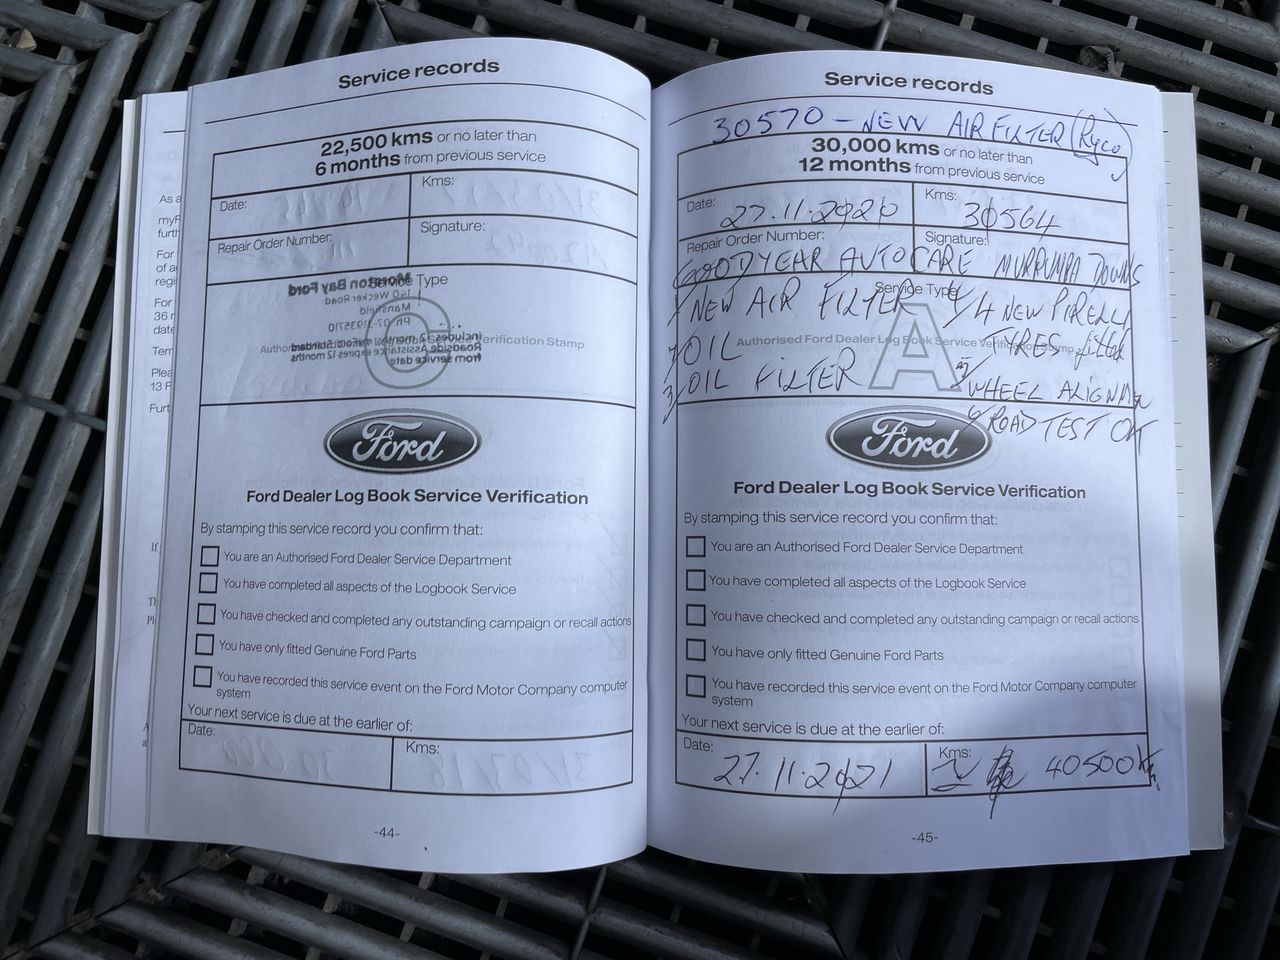 Service records
22,500 kms or no later than
6 months from previous service
Date:
Kms:
Repair Order Number:
Signature:
Service Type
Moreton Bay Ford
140 Wecker Road
Mansfield
C
Authorised Ford Dealer Log Book Service Verification Stamp
Includes 12 months
Roadside Assistance expires 12 months
from service date
Ford
Ford Dealer Log Book Service Verification
By stamping this service record you confirm that:
You are an Authorised Ford Dealer Service Department
You have completed all aspects of the Logbook Service
You have checked and completed any outstanding campaign or recall actions
You have only fitted Genuine Ford Parts
You have recorded this service event on the Ford Motor Company computer
system
Your next service is due at the earlier of:
Date:
Kms:
-44-
Service records
30570 - NEW AIR FILTER (Ryco)
30,000 kms or no later than
12 months from previous service
Date: 27.11.2020
Kms: 30564
Repair Order Number:
Signature:
GOODYEAR AUTOCARE MURRUMBA DOWNS
Service Type
1/ NEW AIR FILTER
2/ OIL
3/ OIL FILTER
4/ 4 NEW PIRELLI
TYRES fitted
5/ WHEEL ALIGNMEN
6/ ROAD TEST OK
A
Authorised Ford Dealer Log Book Service Verification Stamp
Ford
Ford Dealer Log Book Service Verification
By stamping this service record you confirm that:
You are an Authorised Ford Dealer Service Department
You have completed all aspects of the Logbook Service
You have checked and completed any outstanding campaign or recall actions
You have only fitted Genuine Ford Parts
You have recorded this service event on the Ford Motor Company computer
system
Your next service is due at the earlier of:
Date: 27.11.2021
Kms: 40500
-45-